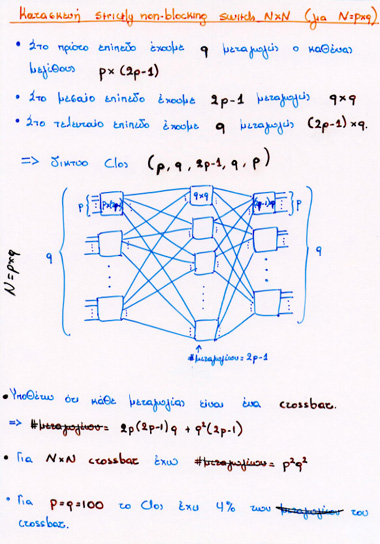 Κατασκευή strictly non-blocking switch N×N (για N=p×q)
• Στο πρώτο επίπεδο έχουμε q μεταγωγείς ο καθένας
μεγέθους p×(2p-1)
• Στο μεσαίο επίπεδο έχουμε 2p-1 μεταγωγείς q×q
• Στο τελευταίο επίπεδο έχουμε q μεταγωγείς (2p-1)×q.
=> δίκτυο Clos (p, q, 2p-1, q, p)
q×q
p
p
q
q
N=p×q
#μεταγωγέων=2p-1
• Υποθέτω ότι κάθε μεταγωγέας είναι ένα crossbar.
=> #μεταγωγέων= 2p(2p-1)q + q²(2p-1)
• Για N×N crossbar έχω #μεταγωγέων= p²q²
• Για p=q=100 το Clos έχει 4% των μεταγωγέων του
crossbar.